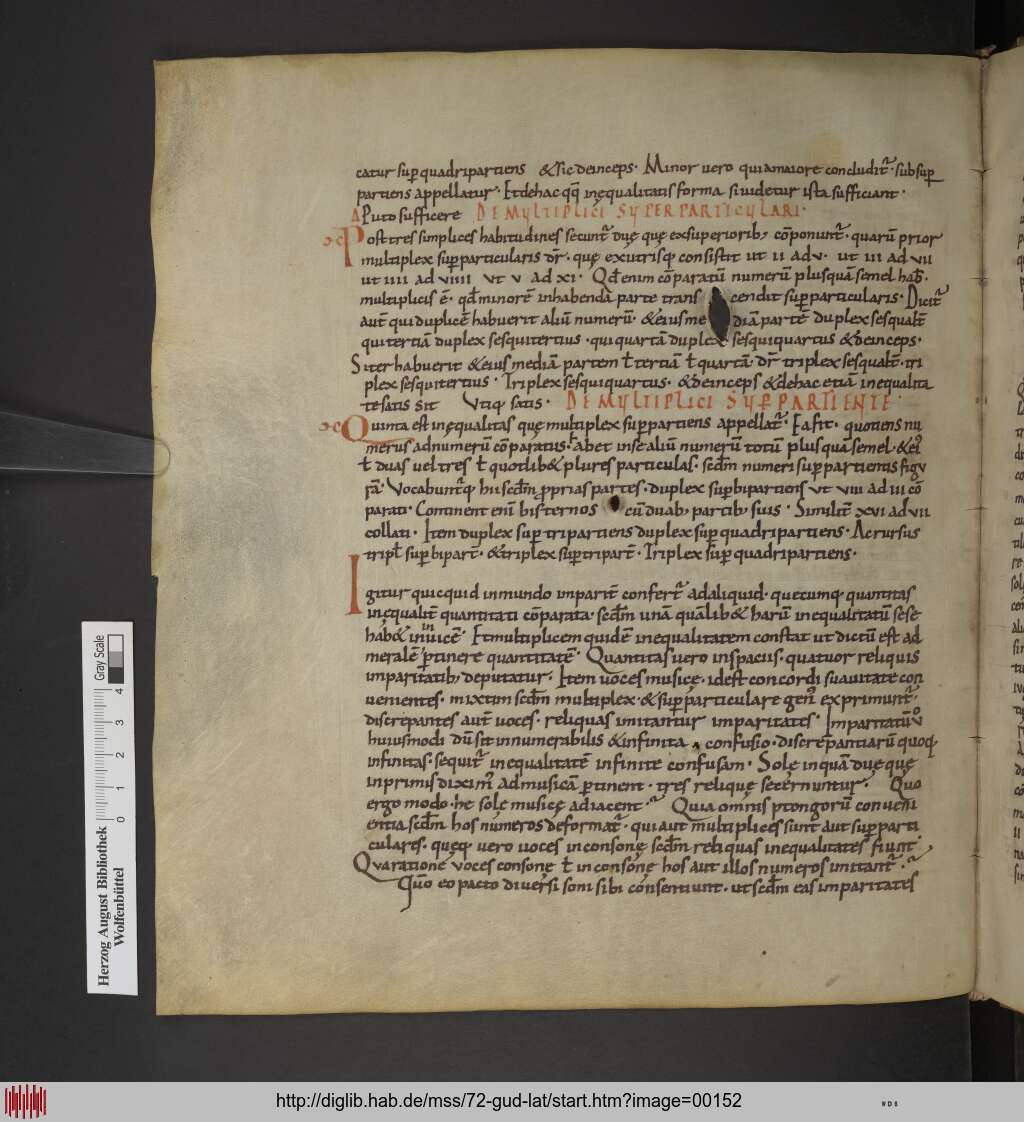 catur sup̄ quadripartiens &sic deinceps. Minor uero qui amaiore concludit᷑. subsup̄
partiens appellatur. Et de hac qq̄ inęqualitatis forma si uidetur ista sufficiant.
Δ Puto sufficere DE MVLTIPLICI SVPERPARTICVLARI.
Post tres simplices habitudines secunt᷑ duę quę ex superiorib; cōponunt᷑. quarū prior
multiplex sup̄particularis dr̄. quę ex utrisq; consistit ut II ad V. ut III ad VII
ut IIII ad VIIII ut V ad XI. Qđ enim cōparatū numerū plusquā semel hab̄.
multiplicis ē. qđ minorē in habendā parte trans cendit sup̄particularis. Dicit᷑
aut̄ qui duplicē habuerit aliū numerū. &eius me diā partē duplex sesqualt̄.
qui tertiā duplex sesquitertius. qui quartā duplex sesquiquartus &deinceps.
Si ter habuerit &eius mediā partem ł tertiā ł quartā. dr̄ triplex sesqualt̄. tri
plex sesquitertius. Triplex sesquiquartus. &deinceps &de hac etiā inequalita
te satis sit Vtiq; satis. DE MVLTIPLICI SVPERPARTIENTE.
Quinta est inęqualitas quę multiplex sup̄partiens appellat᷑. Ea fit. quotiens nu
merus ad numerū cōparatus. abet in se aliū numerū totū plus quā semel. &ei᷒
ł duas uel tres ł quotlib& plures particulas. scđm numeri sup̄partientis figu
rā. Vocabunt᷑q; hii scđm p̄prias partes. duplex sup̄bipartiens ut VIII ad III cō
parati. Continent enī bis ternos cū duab; partib; suis. Similit̄ XVI ad VII
collati. Item duplex sup̄ tripartiens duplex sup̄ quadripartiens. Ac rursus
tripł sup̄bipart̄. &triplex sup̄tripart̄. Triplex sup̄ quadripartiens.
Igitur quicquid in mundo imparit̄ confert᷑ ad aliquid. quecumq; quantitas
inęqualit̄ quantitati cōparata. scđm unā quālib& harū inequalitatū sese
hab& in inuicē. Et multiplicem quidē inequalitatem constat ut dictū est ad
meralē p̄tinere quantitatē. Quantitas uero in spaciis. quatuor reliquis
imparitatib; deputatur. Item uoces musicę. id est concordi suauitate con
uenientes. mixtim scđm multiplex. &sup̄particulare gen᷒ exprimunt᷑.
discrepantes aut̄ uoces. reliquas imitantur imparitates. Imparitatū ū
huiusmodi dū sit innumerabilis &infinita confusio. discrepantiarū quoq;
infinitas. sequit᷑ inequalitatē infinite confusam. Sole inquā duę quę
in primis dixim᷒ ad musicā p̄tinent. tres relique secernuntur. Quo
ergo modo. he solę musicę adiacent. Quia omnis ptongorū conueni
entia scđm hos numeros deformat᷑. qui aut multiplices sunt aut sup̄parti
culares. queq; uero uoces inconsonę scđm reliquas inequalitates fiunt
Qua ratione uoces consone ł inconsone hos aut illos numeros imitant᷑.
Qūo eo pacto diuersi soni sibi consentiunt. ut scđm eas imparitates
Herzog August Bibliothek
Wolfenbüttel
0 1 2 3 4
Gray Scale
http://diglib.hab.de/mss/72-gud-lat/start.htm?image=00152